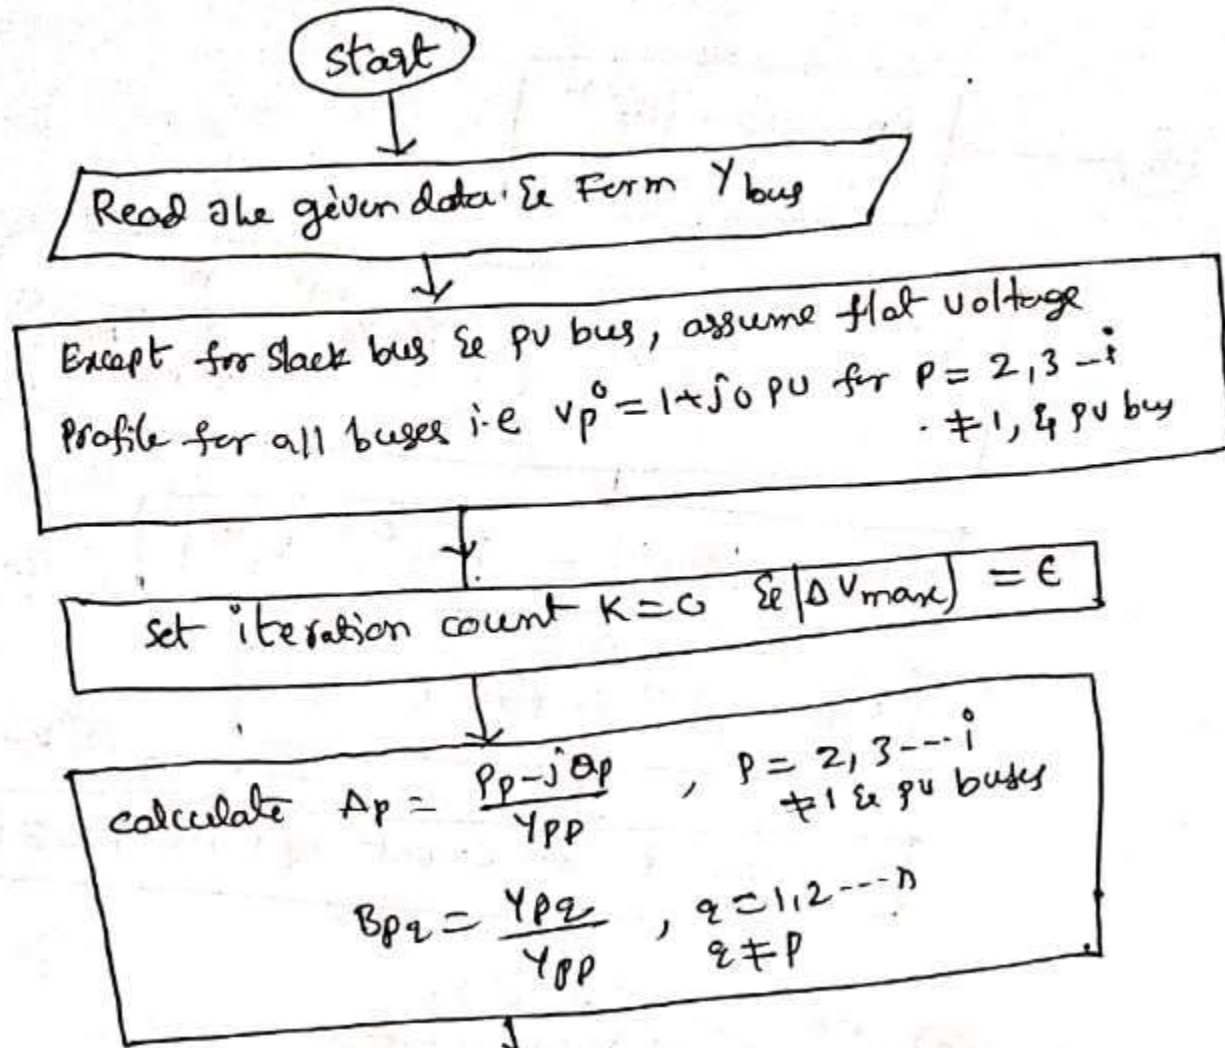 start
Read the given data & Form Y bus
Except for slack bus & pv bus, assume flat voltage
Profile for all buses i.e Vp⁰ = 1+j0 PU for P = 2,3 --i
≠1, & pv bus
set iteration count K=0 & |ΔVmax| = ϵ
calculate Ap = Pp-jQp / Ypp , P = 2,3---i
≠1 & pv buses
Bpq = Ypq / Ypp , q=1,2----n
q≠p